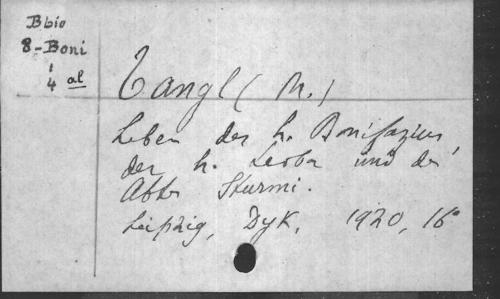 Bbio
8-Boni
1
4 al
Tangl (M.)
Leben des h. Bonifazius,
der h. Leoba und des
Abtes Sturmi.
Leipzig, Dyk, 1920, 16°